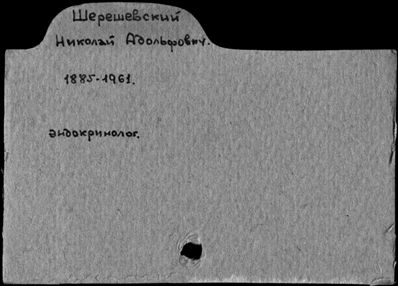 Шерешевский
Николай Адольфович.
1885-1961.
эндокринолог.